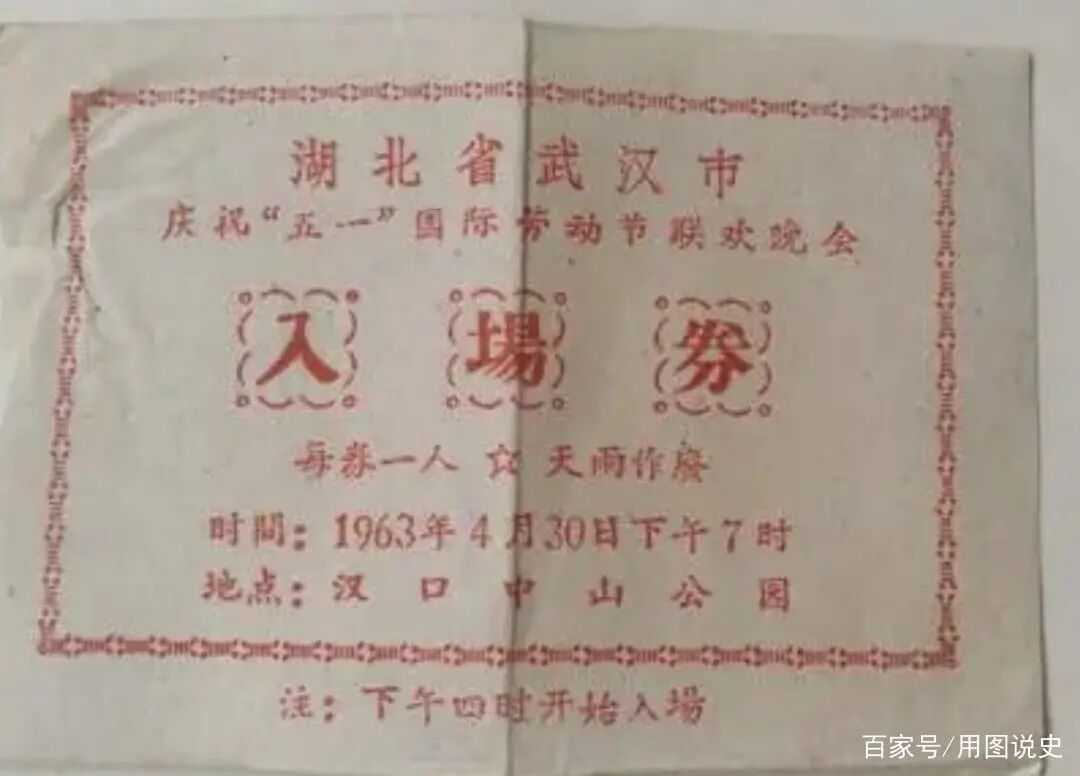 湖北省武汉市
庆祝“五一”国际劳动节联欢晚会
入場券
每券一人 ☆ 天雨作废
时間：1963年4月30日下午7时
地点：汉口中山公园
注：下午四时开始入場
百家号/用图说史